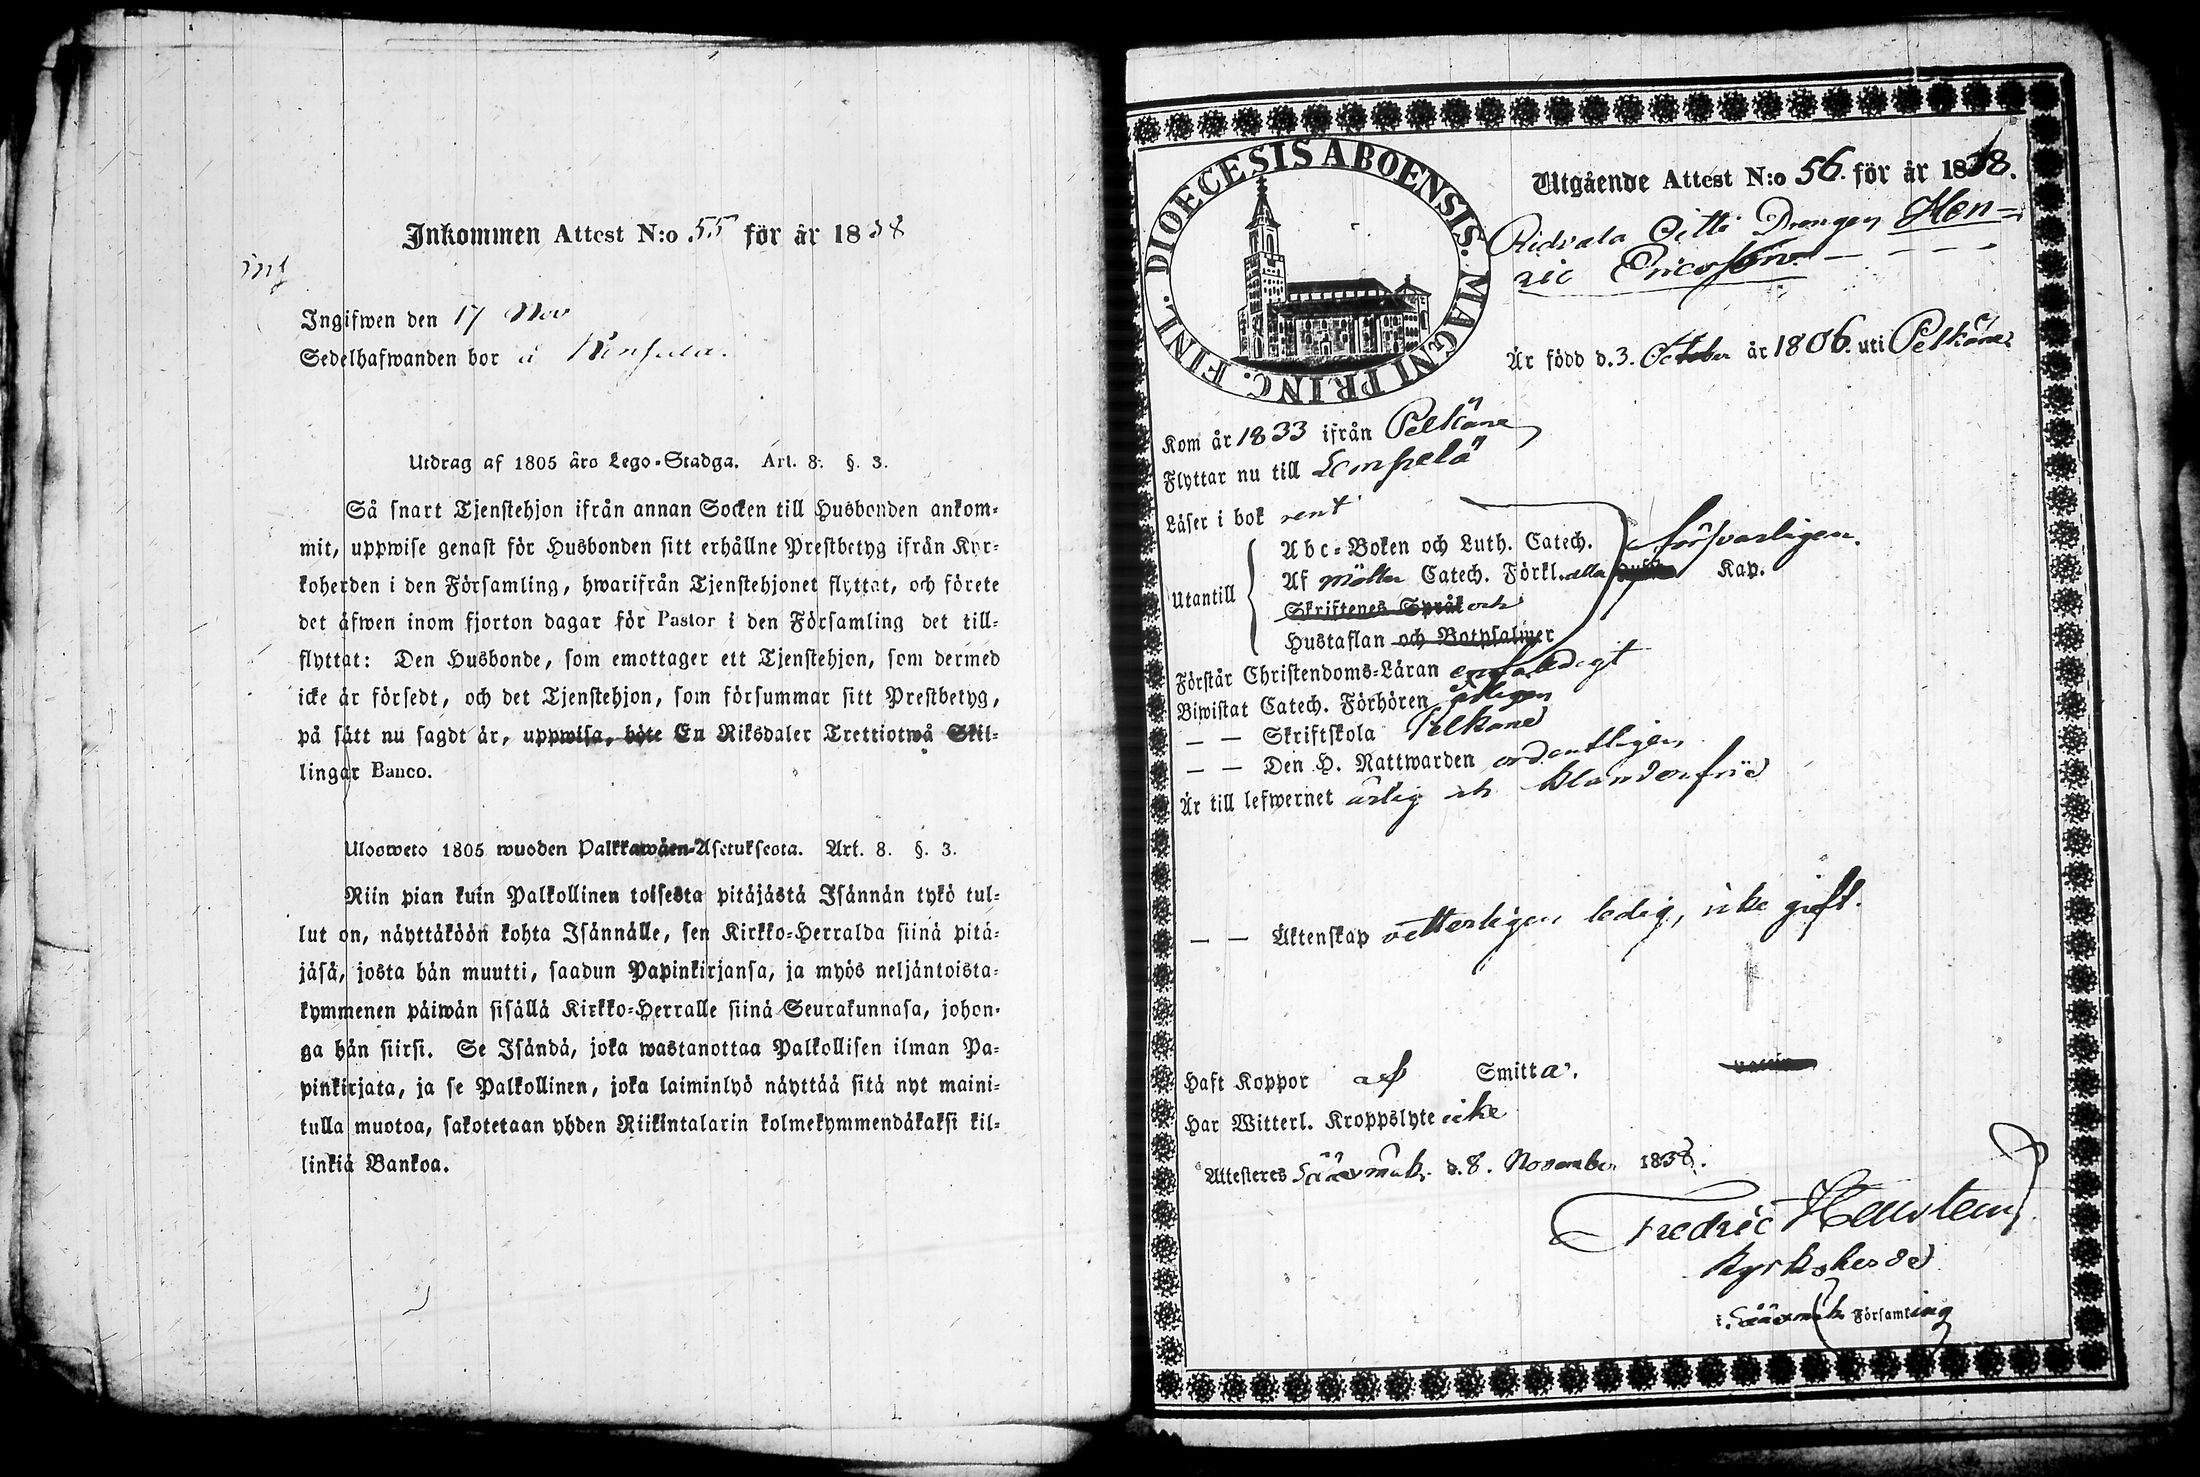 Inkommen Attest N:o 55 för år 1838
Ingifwen den 17 Nov
Sedelhafwanden bor å
Utdrag af 1805 års Lego-Stadga. Art. 8. §. 3.
Så snart Tjenstehjon ifrån annan Socken till Husbonden ankom-
mit, uppwise genast för Husbonden sitt erhållne Prestbetyg ifrån Kyr-
koherden i den Församling, hwarifrån Tjenstehjonet flyttat, och förete
det äfwen inom fjorton dagar för Pastor i den Församling det till-
flyttat: Den Husbonde, som emottager ett Tjenstehjon, som dermed
icke är försedt, och det Tjenstehjon, som försummar sitt Prestbetyg,
på sätt nu sagdt är, uppwisa, böte En Riksdaler Trettiotwå Skil-
lingar Banco.
Ulosweto 1805 wuoden Palkkawäen-Asetuksesta. Art. 8. §. 3.
Niin pian kuin Palkollinen toisesta pitäjästä Isännän tykö tul-
lut on, näyttäköön kohta Isännälle, sen Kirkko-Herralda siinä pitä-
jäsä, josta hän muutti, saadun Papinkirjansa, ja myös neljäntoista-
kymmenen päiwän sisällä Kirkko-Herralle siinä Seurakunnasa, johon-
ga hän siirsi. Se Isändä, joka wastanottaa Palkollisen ilman Pa-
pinkirjata, ja se Palkollinen, joka laiminlyö näyttää sitä nyt maini-
tulla muotoa, sakotetaan yhden Riikintalarin kolmekymmendäkaksi kil-
linkiä Bankoa.
DIOECESIS ABOENSIS. MAGNI PRINC. FINL.
Utgående Attest N:o 56. för år 1838.
Ridvala Oitti Drengen Hen-
ric Ericsson
Är född d. 3. October år 1806. uti Pelkäne
Kom år 1833 ifrån Pelkäne
Flyttar nu till Lempelä
Läser i bok rent
Utantill
Abc-Boken och Luth. Catech.
försvarligen.
Af Möller Catech. Förkl. alla Kap.
Skriftenes Språk och
Hustaflan och Botpsalmer
Förstår Christendoms-Läran enfaldigt
Biwistat Catech. Förhören årligen
— — Skriftskola Pelkäne
— — Den H. Nattwarden ordentligen
Är till lefwernet ärlig och klanderfri
— — Äktenskap vetterligen ledig, icke gift.
Haft Koppor af Smitta.
Har Witterl. Kroppslyte icke
Attesteres Sääxmäki d. 8. November 1838.
Fredric
Kyrkoherde
i Sääxmäki Församling